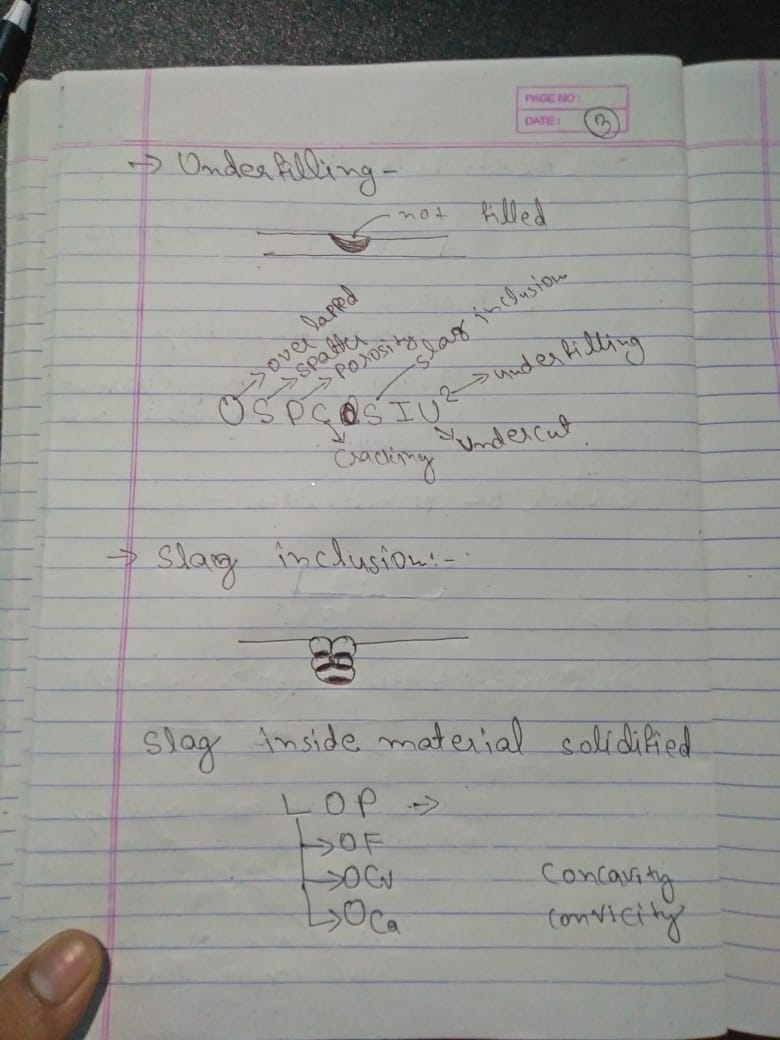 PAGE NO:
DATE: 3
→ Underfilling -
not filled
over lapped
spatter
porosity
slag inclusion
underfilling
O S P C S I U²
cracking
undercut.
→ Slag inclusion:-
Slag inside material solidified
L O P →
→ OF
→ OCv Concavity
→ OCa Convicity